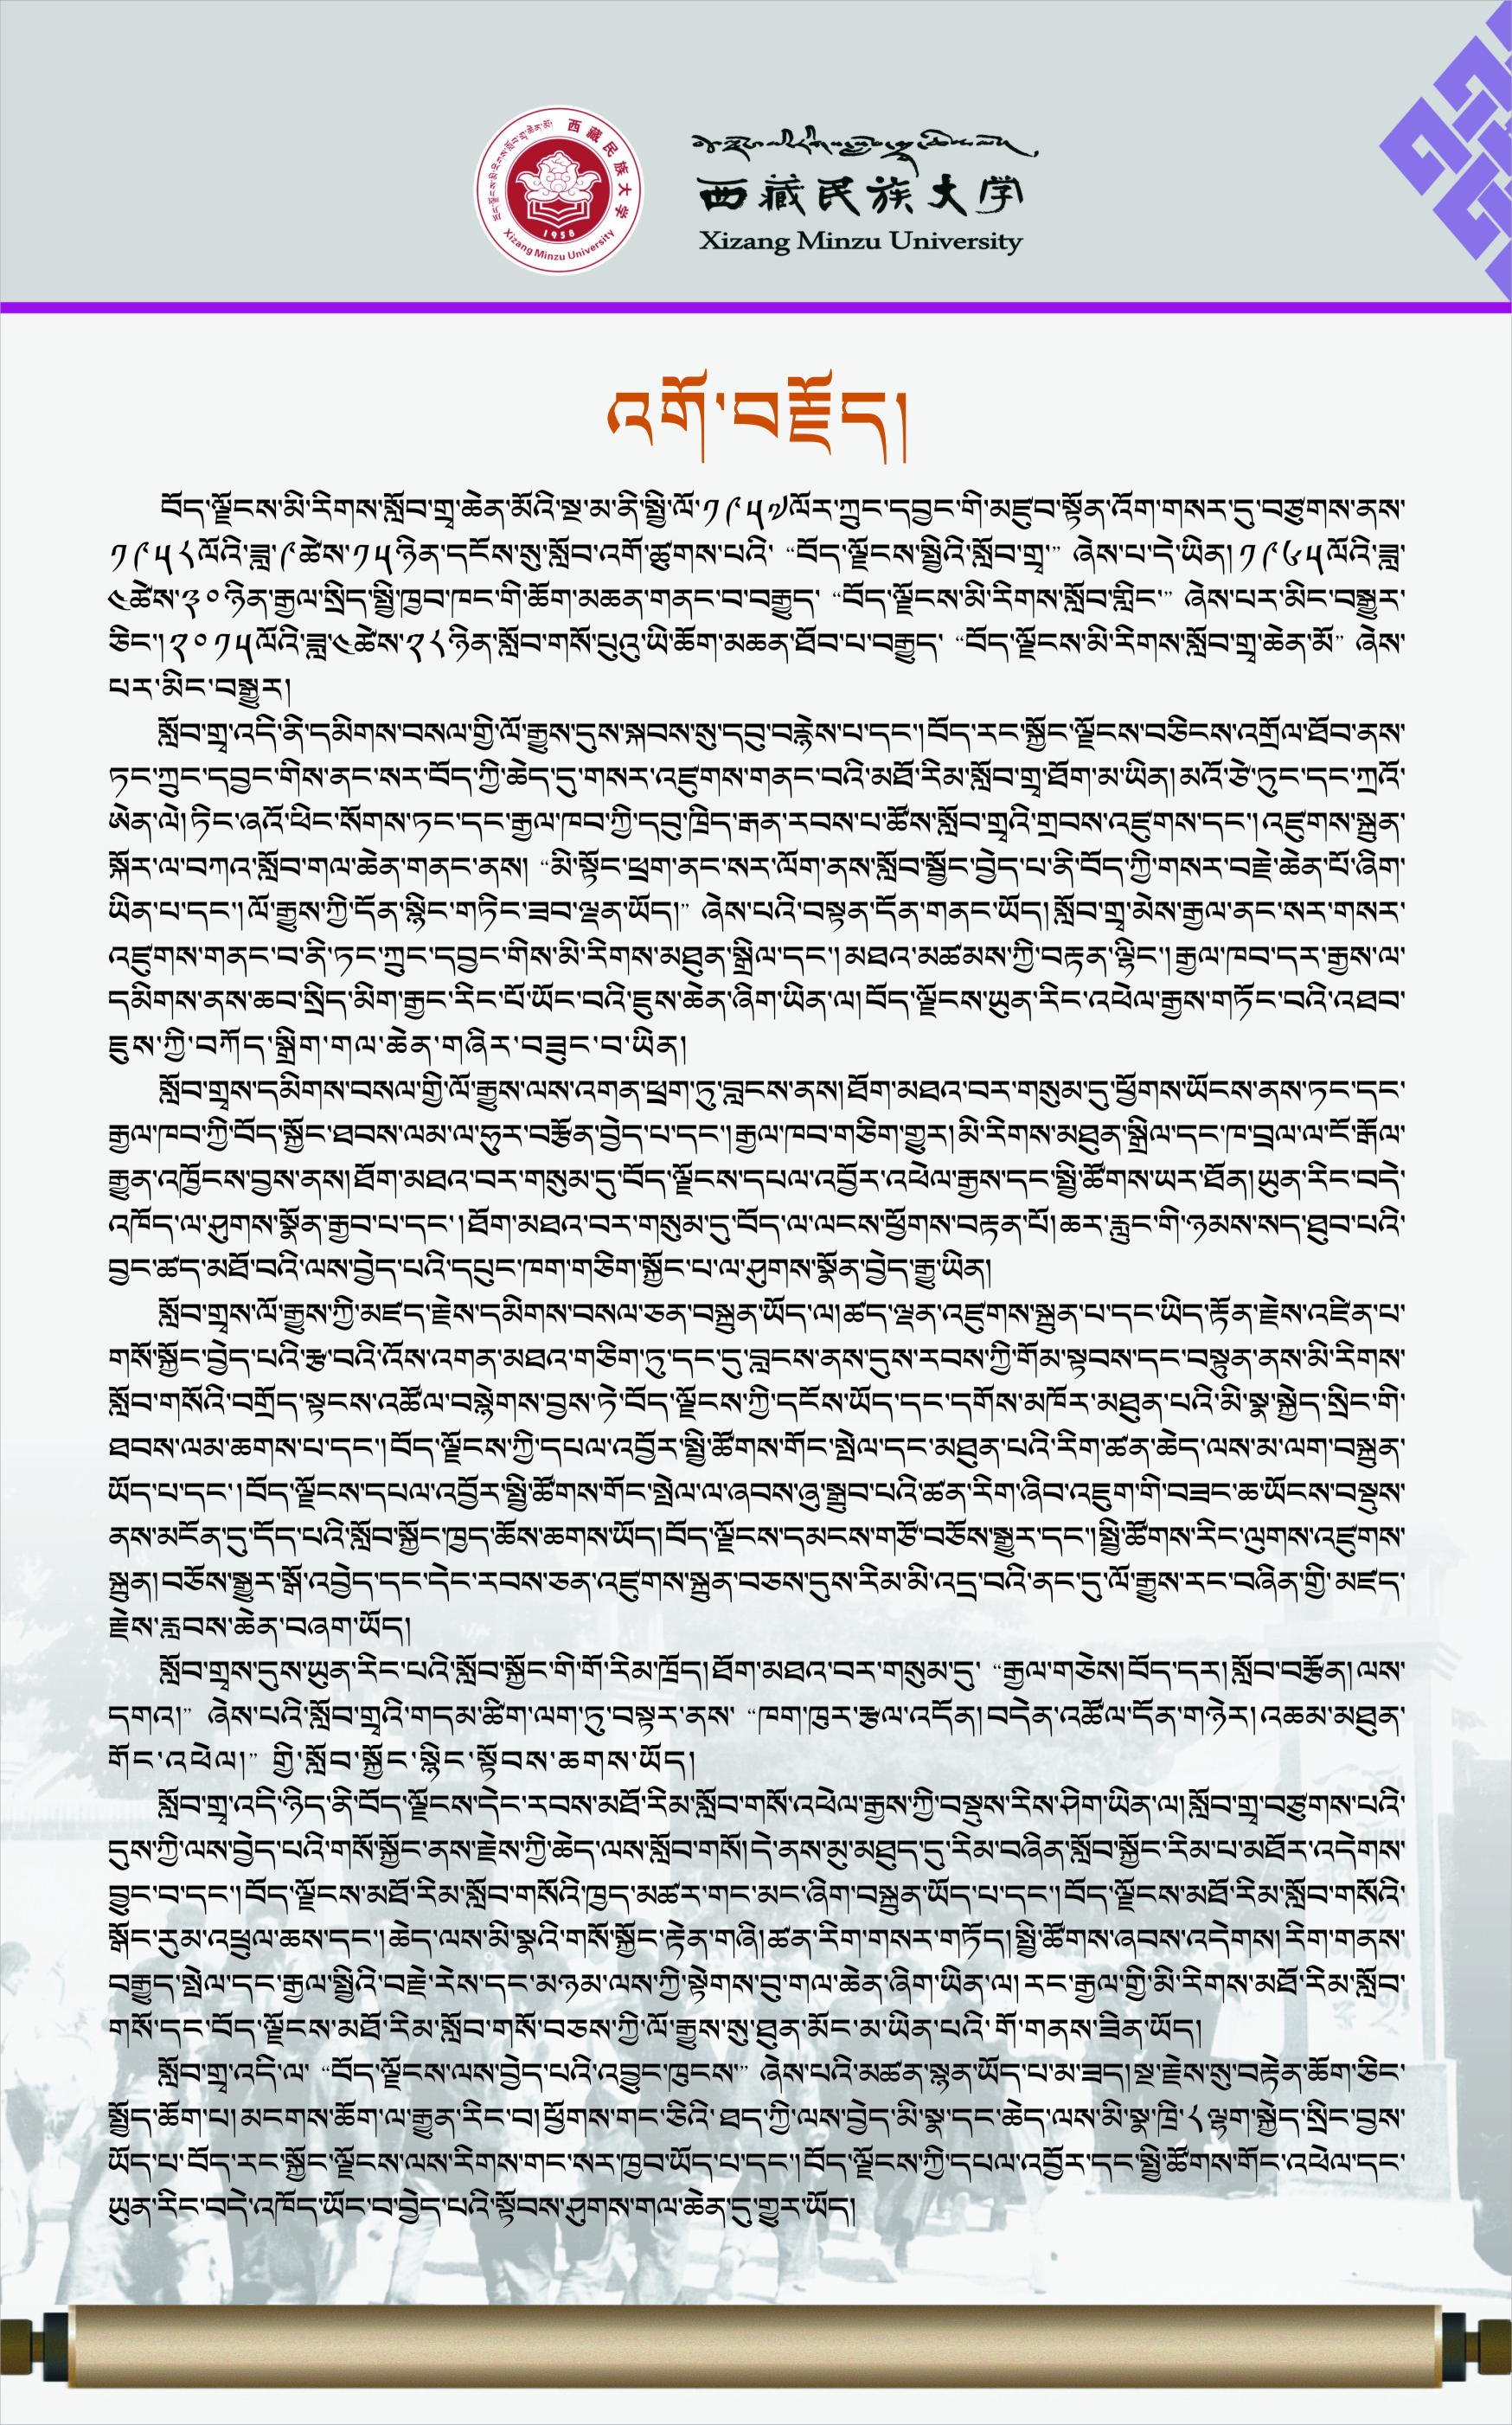 བོད་ལྗོངས་མི་རིགས་སློབ་གྲྭ་ཆེན་མོ།
西藏民族大学
1958
Xizang Minzu University
西藏民族大学
Xizang Minzu University
འགོ་བརྗོད།
བོད་ལྗོངས་མི་རིགས་སློབ་གྲྭ་ཆེན་མོའི་སྔ་མ་ནི་སྤྱི་ལོ་༡༩༥༧ལོར་ཀྲུང་དབྱང་གི་མཛུབ་སྟོན་འོག་གསར་དུ་བཙུགས་ནས་
༡༩༥༨ལོའི་ཟླ་༩ཚེས་༡༥ཉིན་དངོས་སུ་སློབ་འགོ་ཚུགས་པའི་ “བོད་ལྗོངས་སྤྱིའི་སློབ་གྲྭ་” ཞེས་པ་དེ་ཡིན། ༡༩༦༥ལོའི་ཟླ་
༤ཚེས་༣༠ཉིན་རྒྱལ་སྲིད་སྤྱི་ཁྱབ་ཁང་གི་ཆོག་མཆན་གནང་བ་བརྒྱུད་ “བོད་ལྗོངས་མི་རིགས་སློབ་གླིང་” ཞེས་པར་མིང་བསྒྱུར་
ཅིང་། ༢༠༡༥ལོའི་ཟླ་༤ཚེས་༢༨ཉིན་སློབ་གསོ་པུའུ་ཡི་ཆོག་མཆན་ཐོབ་པ་བརྒྱུད་ “བོད་ལྗོངས་མི་རིགས་སློབ་གྲྭ་ཆེན་མོ” ཞེས་
པར་མིང་བསྒྱུར།
སློབ་གྲྭ་འདི་ནི་དམིགས་བསལ་གྱི་ལོ་རྒྱུས་དུས་སྐབས་སུ་དབུ་བརྙེས་པ་དང་། བོད་རང་སྐྱོང་ལྗོངས་བཅིངས་འགྲོལ་ཐོབ་ནས་
ཏང་ཀྲུང་དབྱང་གིས་ནང་སར་བོད་ཀྱི་ཆེད་དུ་གསར་འཛུགས་གནང་བའི་མཐོ་རིམ་སློབ་གྲྭ་ཐོག་མ་ཡིན། མའོ་ཙེ་ཏུང་དང་ཀྲའོ་
ཨེན་ལེ། ཏིང་ཞའོ་ཕིང་སོགས་ཏང་དང་རྒྱལ་ཁབ་ཀྱི་དབུ་ཁྲིད་རྒན་རབས་པ་ཚོས་སློབ་གྲྭའི་གྲབས་འཛུགས་དང་། འཛུགས་སྐྲུན་
སྐོར་ལ་བཀའ་སློབ་གལ་ཆེན་གནང་ནས། “མི་སྟོང་ཕྲག་ནང་སར་ལོག་ནས་སློབ་སྦྱོང་བྱེད་པ་ནི་བོད་ཀྱི་གསར་བརྗེ་ཆེན་པོ་ཞིག་
ཡིན་པ་དང་། ལོ་རྒྱུས་ཀྱི་དོན་སྙིང་གཏིང་ཟབ་ལྡན་ཡོད།” ཞེས་པའི་བསྟན་དོན་གནང་ཡོད། སློབ་གྲྭ་མེས་རྒྱལ་ནང་སར་གསར་
འཛུགས་གནང་བ་ནི་ཏང་ཀྲུང་དབྱང་གིས་མི་རིགས་མཐུན་སྒྲིལ་དང་། མཐའ་མཚམས་ཀྱི་བརྟན་ལྷིང་། རྒྱལ་ཁབ་དར་རྒྱས་ལ་
དམིགས་ནས་ཆབ་སྲིད་མིག་རྒྱང་རིང་པོ་ཡོང་བའི་ཇུས་ཆེན་ཞིག་ཡིན་ལ། བོད་ལྗོངས་ཡུན་རིང་འཕེལ་རྒྱས་གཏོང་བའི་འཐབ་
ཇུས་ཀྱི་བཀོད་སྒྲིག་གལ་ཆེན་གཞིར་བཟུང་བ་ཡིན།
སློབ་གྲྭས་དམིགས་བསལ་གྱི་ལོ་རྒྱུས་ལས་འགན་ཕྲག་ཏུ་བླངས་ནས། ཐོག་མཐའ་བར་གསུམ་དུ་ཕྱོགས་ཡོངས་ནས་ཏང་དང་
རྒྱལ་ཁབ་ཀྱི་བོད་སྐྱོང་ཐབས་ལམ་ལ་ཧུར་བརྩོན་བྱེད་པ་དང་། རྒྱལ་ཁབ་གཅིག་གྱུར། མི་རིགས་མཐུན་སྒྲིལ་དང་ཁ་བྲལ་ལ་ངོ་རྒོལ་
རྒྱུན་འཁྱོངས་བྱས་ནས། ཐོག་མཐའ་བར་གསུམ་དུ་བོད་ལྗོངས་དཔལ་འབྱོར་འཕེལ་རྒྱས་དང་སྤྱི་ཚོགས་ཡར་ཐོན། ཡུན་རིང་བདེ་
འཁོད་ལ་ཤུགས་སྣོན་རྒྱབ་པ་དང་། ཐོག་མཐའ་བར་གསུམ་དུ་བོད་ལ་ལངས་ཕྱོགས་བརྟན་པོ། ཆར་རླུང་གི་ཉམས་སད་ཐུབ་པའི་
བྱང་ཚད་མཐོ་བའི་ལས་བྱེད་པའི་དཔུང་ཁག་གཅིག་སྐྱོང་པ་ལ་ཤུགས་སྣོན་བྱེད་རྒྱུ་ཡིན།
སློབ་གྲྭས་ལོ་རྒྱུས་ཀྱི་མཛད་རྗེས་དམིགས་བསལ་ཅན་བསྐྲུན་ཡོད་ལ། ཚད་ལྡན་འཛུགས་སྐྲུན་པ་དང་ཡིད་རྟོན་རྗེས་འཛིན་པ་
གསོ་སྐྱོང་བྱེད་པའི་རྩ་བའི་འོས་འགན་མཐའ་གཅིག་ཏུ་དང་དུ་བླངས་ནས་དུས་རབས་ཀྱི་གོམ་སྟབས་དང་བསྟུན་ནས་མི་རིགས་
སློབ་གསོའི་བགྲོད་སྟངས་འཚོལ་བསྙེགས་བྱས་ཏེ་བོད་ལྗོངས་ཀྱི་དངོས་ཡོད་དང་དགོས་མཁོར་མཐུན་པའི་མི་སྣ་སྐྱེད་སྲིང་གི་
ཐབས་ལམ་ཆགས་པ་དང་། བོད་ལྗོངས་ཀྱི་དཔལ་འབྱོར་སྤྱི་ཚོགས་གོང་སྤེལ་དང་མཐུན་པའི་རིག་ཚན་ཆེད་ལས་མ་ལག་བསྐྲུན་
ཡོད་པ་དང་། བོད་ལྗོངས་དཔལ་འབྱོར་སྤྱི་ཚོགས་གོང་སྤེལ་ལ་ཞབས་ཞུ་སྒྲུབ་པའི་ཚན་རིག་ཞིབ་འཇུག་གི་བཟང་ཆ་ཡོངས་བསྡུས་
ནས་མངོན་དུ་དོད་པའི་སློབ་སྐྱོང་ཁྱད་ཆོས་ཆགས་ཡོད། བོད་ལྗོངས་དམངས་གཙོ་བཅོས་སྒྱུར་དང་། སྤྱི་ཚོགས་རིང་ལུགས་འཛུགས་
སྐྲུན། བཅོས་སྒྱུར་སྒོ་འབྱེད་དང་དེང་རབས་ཅན་འཛུགས་སྐྲུན་བཅས་དུས་རིམ་མི་འདྲ་བའི་ནང་དུ་ལོ་རྒྱུས་རང་བཞིན་གྱི་མཛད་
རྗེས་རླབས་ཆེན་བཞག་ཡོད།
སློབ་གྲྭས་དུས་ཡུན་རིང་པའི་སློབ་སྐྱོང་གི་གོ་རིམ་ཁྲོད། ཐོག་མཐའ་བར་གསུམ་དུ་ “རྒྱལ་གཅེས། བོད་དར། སློབ་བརྩོན། ལས་
དགའ།” ཞེས་པའི་སློབ་གྲྭའི་གདམ་ཚིག་ལག་ཏུ་བསྟར་ནས་ “ཁག་ཁུར་རྩལ་འདོན། བདེན་འཚོལ་དོན་གཉེར། འཆམ་མཐུན་
གོང་འཕེལ།” གྱི་སློབ་སྐྱོང་སྙིང་སྟོབས་ཆགས་ཡོད།
སློབ་གྲྭ་འདི་ཉིད་ནི་བོད་ལྗོངས་དེང་རབས་མཐོ་རིམ་སློབ་གསོ་འཕེལ་རྒྱས་ཀྱི་བསྡུས་རིས་ཤིག་ཡིན་ལ། སློབ་གྲྭ་བཙུགས་པའི་
དུས་ཀྱི་ལས་བྱེད་པའི་གསོ་སྐྱོང་ནས་རྗེས་ཀྱི་ཆེད་ལས་སློབ་གསོ། དེ་ནས་མུ་མཐུད་དུ་རིམ་བཞིན་སློབ་སྐྱོང་རིམ་པ་མཐོར་འདེགས་
བྱུང་བ་དང་། བོད་ལྗོངས་མཐོ་རིམ་སློབ་གསོའི་ཁྱད་མཚར་གང་མང་ཞིག་བསྐྲུན་ཡོད་པ་དང་། བོད་ལྗོངས་མཐོ་རིམ་སློབ་གསོའི་
སྒོང་རུམ་འཕྲུལ་ཆས་དང་། ཆེད་ལས་མི་སྣའི་གསོ་སྐྱོང་རྟེན་གཞི། ཚན་རིག་གསར་གཏོད། སྤྱི་ཚོགས་ཞབས་འདེགས། རིག་གནས་
བརྒྱུད་སྤེལ་དང་རྒྱལ་སྤྱིའི་བརྗེ་རེས་དང་མཉམ་ལས་ཀྱི་སྟེགས་བུ་གལ་ཆེན་ཞིག་ཡིན་ལ། རང་རྒྱལ་གྱི་མི་རིགས་མཐོ་རིམ་སློབ་
གསོ་དང་བོད་ལྗོངས་མཐོ་རིམ་སློབ་གསོ་བཅས་ཀྱི་ལོ་རྒྱུས་སུ་ཐུན་མོང་མ་ཡིན་པའི་གོ་གནས་ཟིན་ཡོད།
སློབ་གྲྭ་འདི་ལ་ “བོད་ལྗོངས་ལས་བྱེད་པའི་འབྱུང་ཁུངས་” ཞེས་པའི་མཚན་སྙན་ཡོད་པ་མ་ཟད། སྔ་རྗེས་སུ་བརྟེན་ཆོག་ཅིང་
སྤྱོད་ཆོག་པ། མངགས་ཆོག་ལ་རྒྱུན་རིང་བ། ཕྱོགས་གང་ཅིའི་ཐད་ཀྱི་ལས་བྱེད་མི་སྣ་དང་ཆེད་ལས་མི་སྣ་ཁྲི་༨ལྷག་སྐྱེད་སྲིང་བྱས་
ཡོད་པ་བོད་རང་སྐྱོང་ལྗོངས་ལས་རིགས་གང་སར་ཁྱབ་ཡོད་པ་དང་། བོད་ལྗོངས་ཀྱི་དཔལ་འབྱོར་དང་སྤྱི་ཚོགས་གོང་འཕེལ་དང་
ཡུན་རིང་བདེ་འཁོད་ཡོང་བ་བྱེད་པའི་སྟོབས་ཤུགས་གལ་ཆེན་དུ་གྱུར་ཡོད།